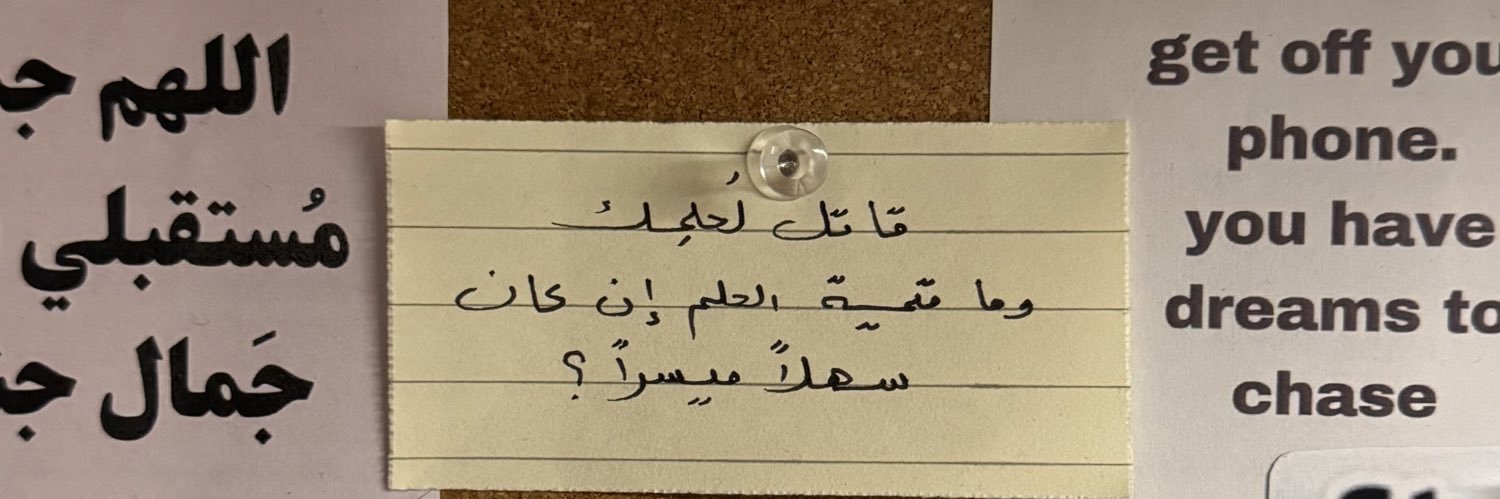 اللهم
مُستقبلي
جَمال
قاتل لحُلمِك
وما قيمة الحلم إن كان
سهلاً ميسراً ؟
get off you
phone.
you have
dreams to
chase